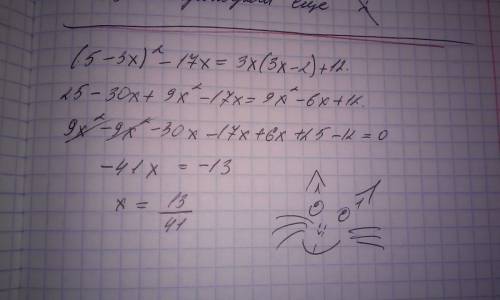 еще x
(5-3x)²-17x=3x(3x-2)+12.
25-30x+9x²-17x=9x²-6x+12.
9x²-9x²-30x-17x+6x+25-12=0
-41x = -13
x = 13/41